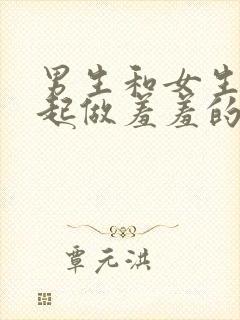 男生和女生
起做羞羞的
覃元洪